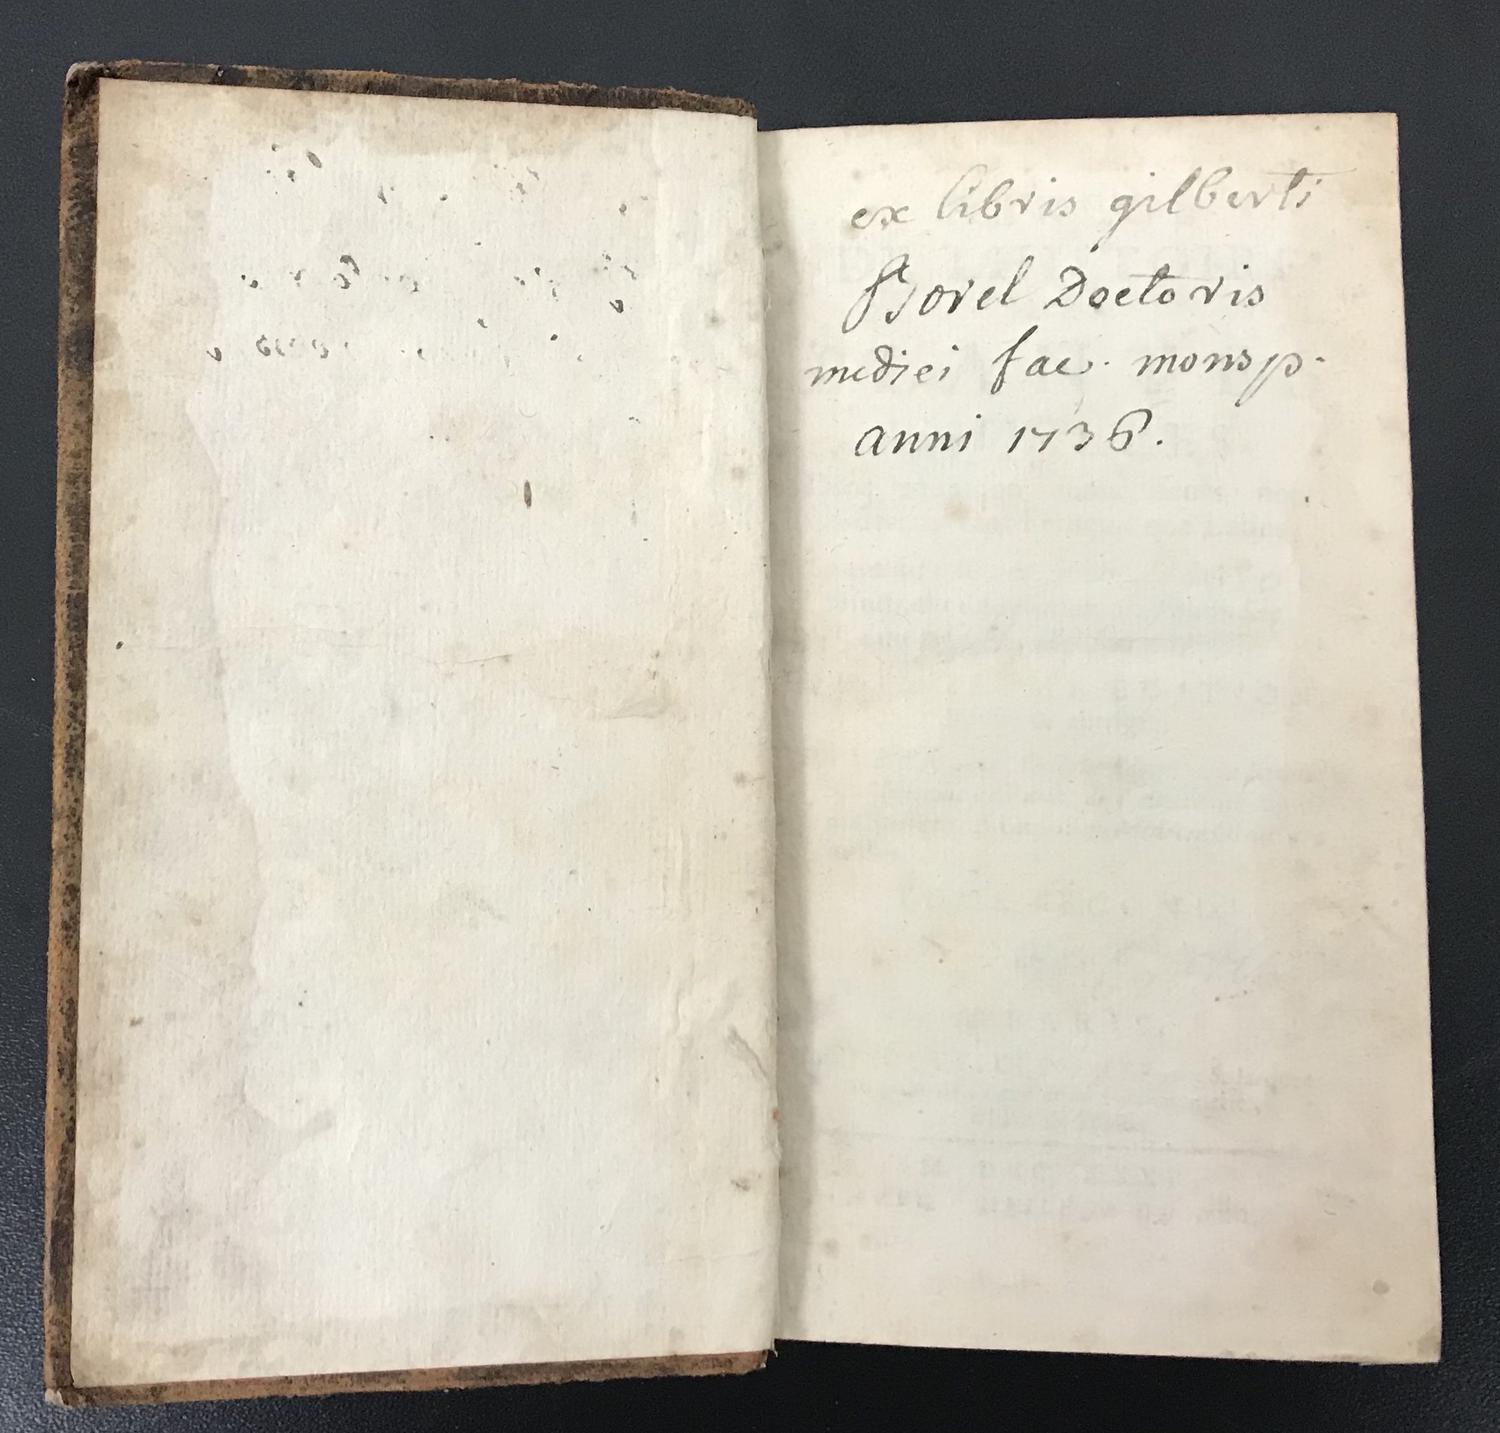 ex libris gilberti
Borel Doctoris
medici fac. monsp.
anni 1736.